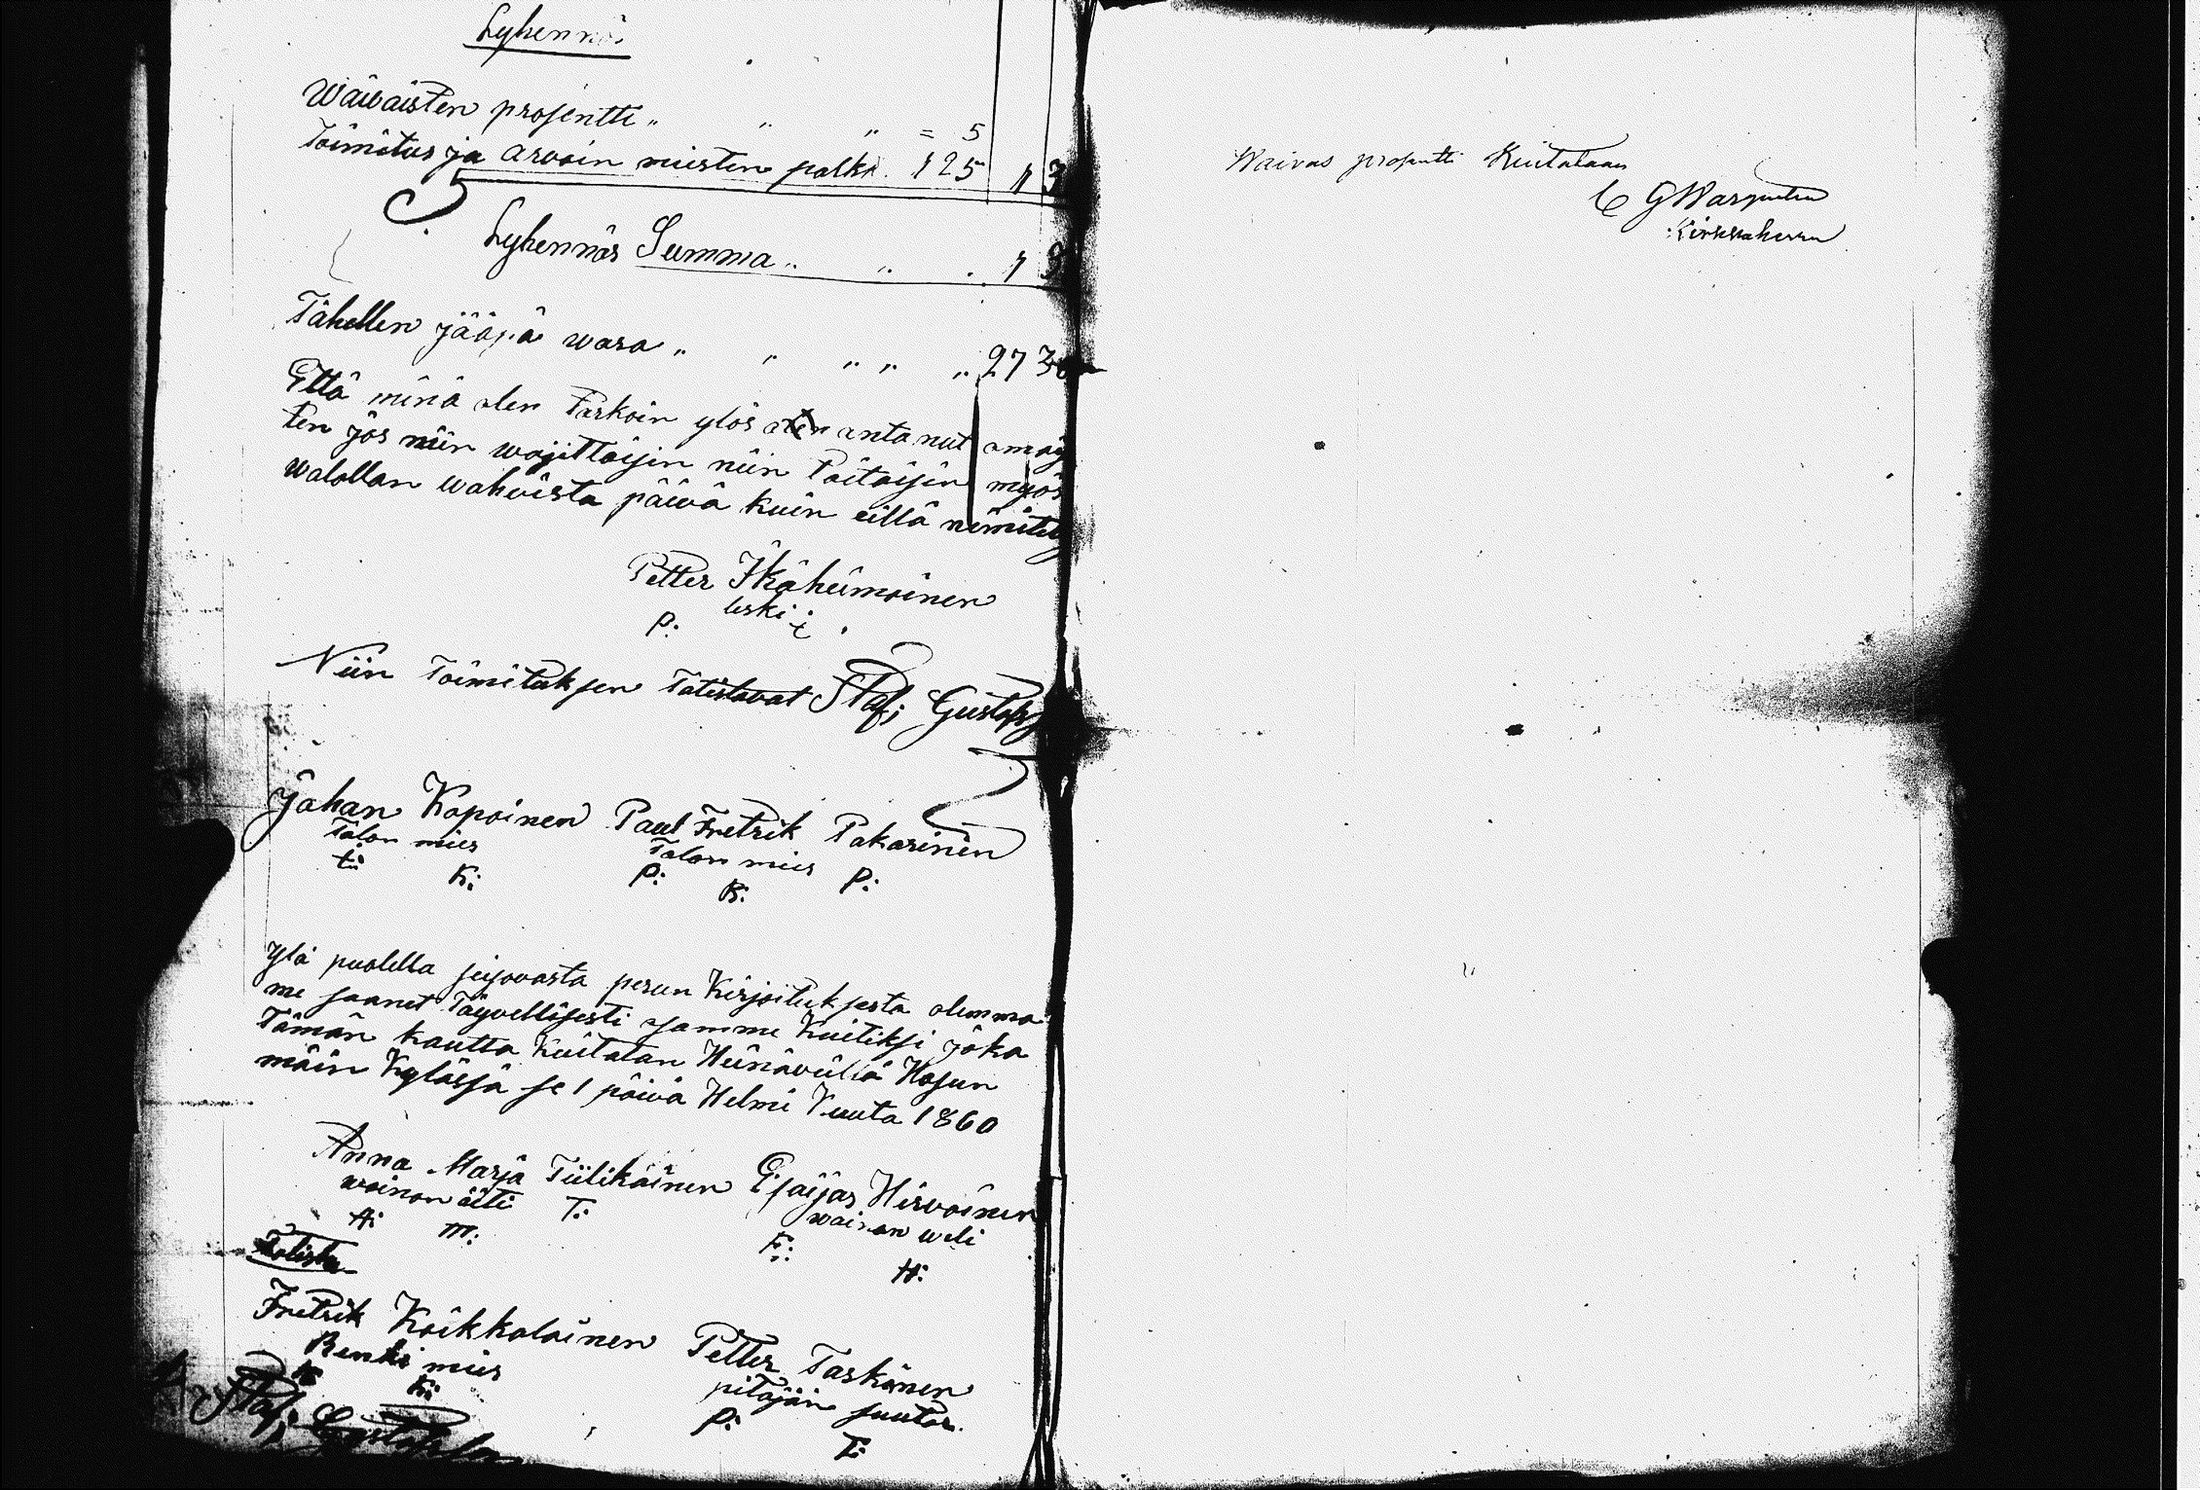 Lyhennös
Waivaisten prosentti „ „ „ = 5
Toimitus ja arvoin miesten palka . 1 25 1 3
Lyhennös Summa „ „ . 1 3
Tähellen jääpä wara „ „ „ „ „ 27 3
Että minä olen Tarkoin ylös antanut
ten jos niin wajittaisin niin Taitaisin myös
walallan wahvista päivä kuin eillä
Petter Ikäheimoinen
leski
P:
Niin Toimituksen Tatistavat Staf; Gustafs
Johan Kopoinen Paul Fretrik Pakarinen
Talon mies Talon mies
K: P: R: P:
Ylä puolella seisovasta perun Kirjoituksesta olemma
me saanet Täyvellisesti samme Kuitiksi joka
Tämän kautta Kuitatan Heinävüliä Hasun
mäin Kylässä se 1 päivä Helmi Kuuta 1860
Anna Marja Tiilikäinen Esaijas Hirvoinen
wainan äiti wainan weli
A: M: T: E: H:
Totista
Fretrik Koikkalainen Petter Taskinen
Renki mies pitäjän suutar.
K: P: T:
Staf:
Waivas prosentti Kuitataan
C G Warpnten
Kirkkoherra